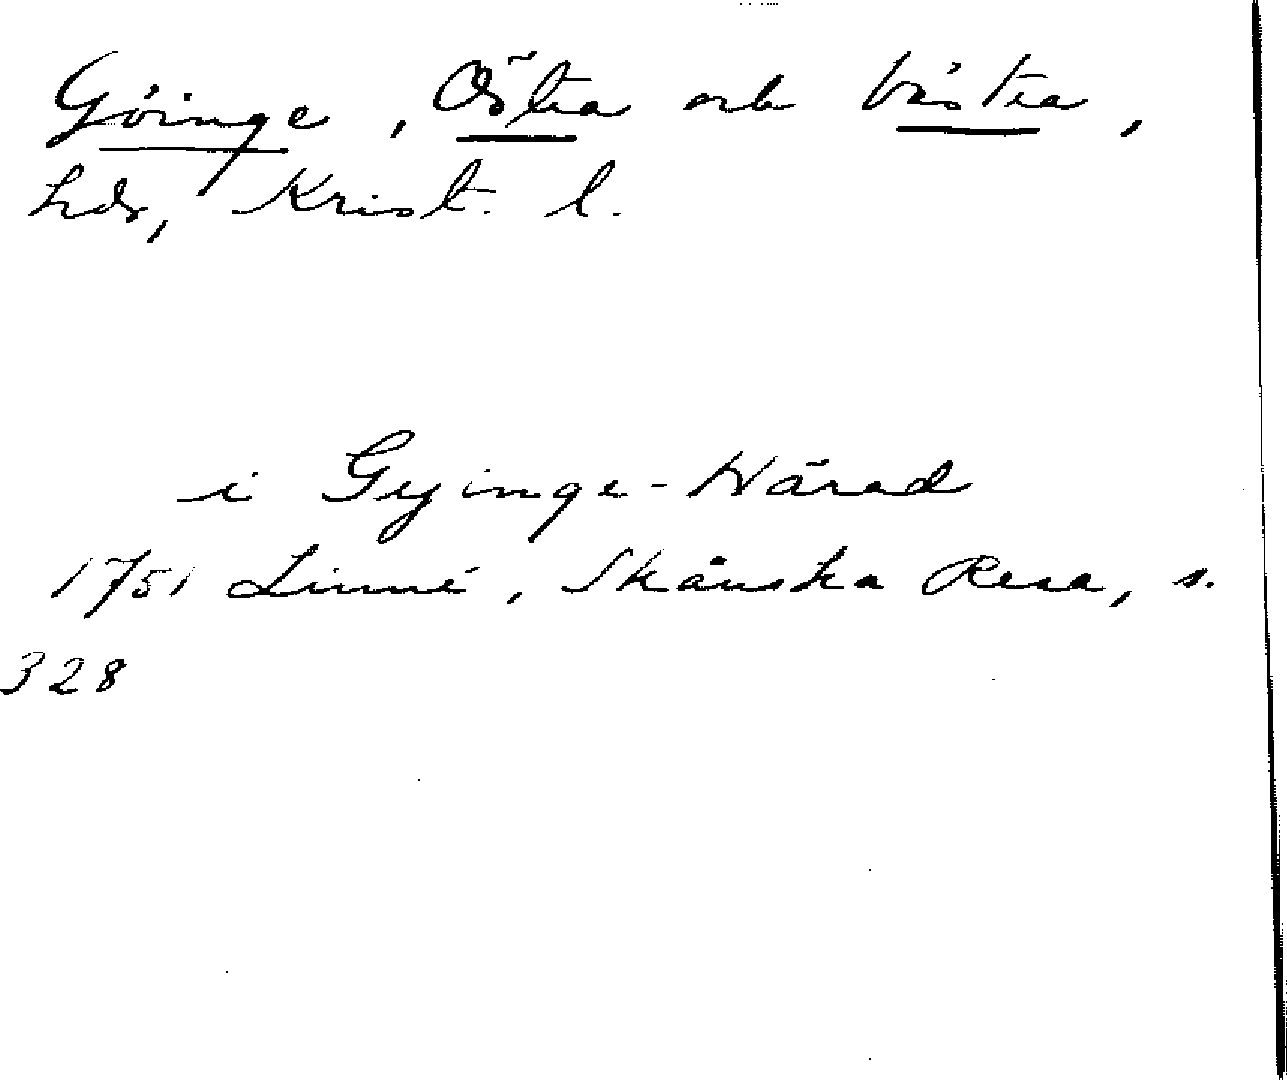 Göinge, Östra och Västra,
hdr, Krist. l.
i Gyinge-Härad
1751 Linné, Skånska Resa, s.
328